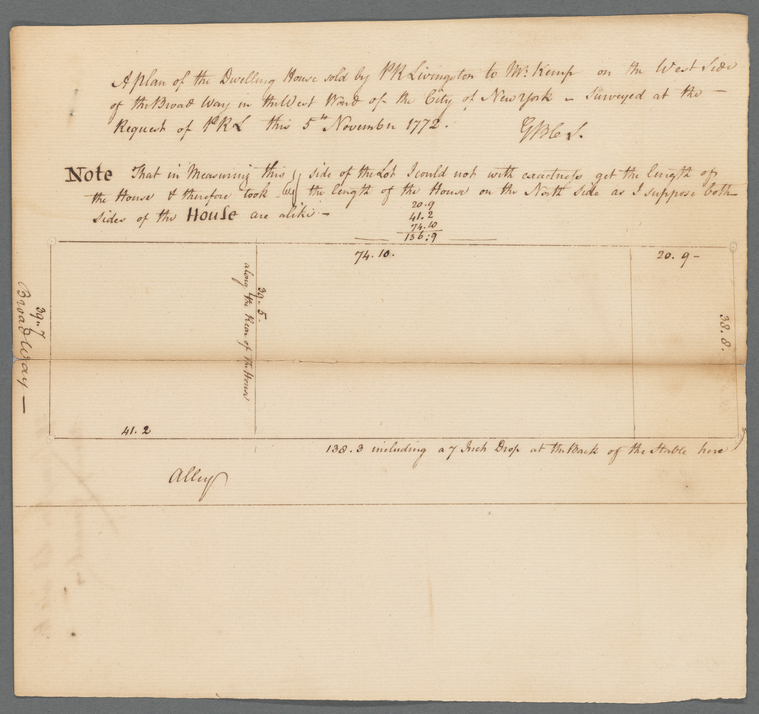 A plan of the Dwelling House sold by PR Livingston to Mr. Kemp on the West Side
of the Broad Way in the West Ward of the City of New York – Surveyed at the –
Request of PRL this 5th November 1772.
Note That in Measuring this side of the Lot I could not with exactness get the length of
the House & therefore took the length of the House on the North side as I suppose both
sides of the House are alike –
20.9
41.2
74.10
136:9
74.10.
20.9–
Broad Way –
39.7
39.5.
along the Rear of the House
38.8.
41.2
138.3 including a 7 Inch Drop at the Back of the Stable here
Alley